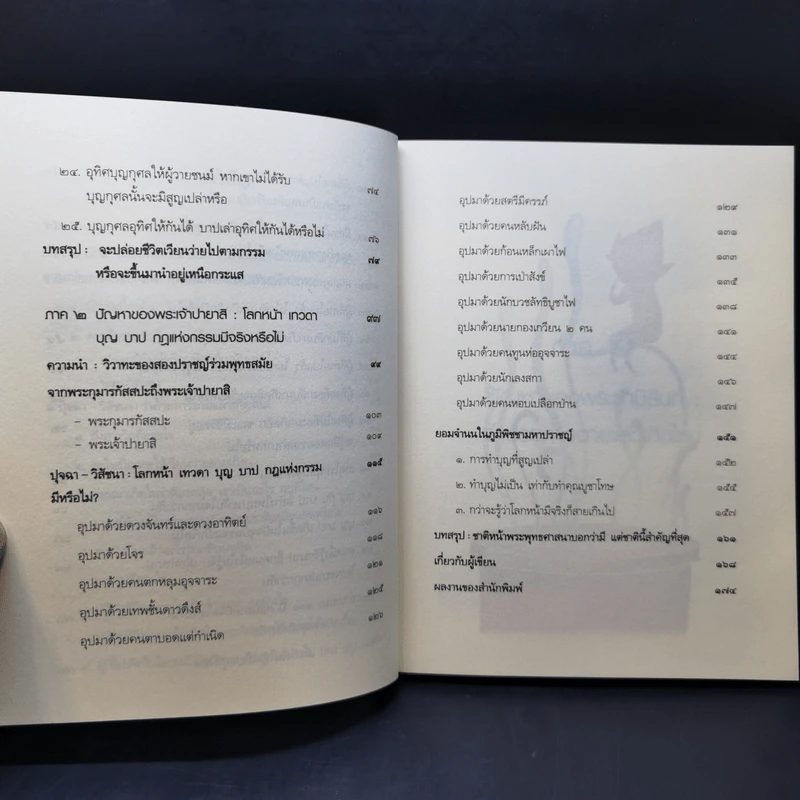 ๒๔. อุทิศบุญกุศลให้ผู้วายชนม์ หากเขาไม่ได้รับ
บุญกุศลนั้นจะมิสูญเปล่าหรือ ๗๔
๒๕. บุญกุศลอุทิศให้กันได้ บาปเล่าอุทิศให้กันได้หรือไม่ ๗๖
บทสรุป : จะปล่อยชีวิตเวียนว่ายไปตามกรรม ๗๙
หรือจะขึ้นมานำอยู่เหนือกระแส
ภาค ๒ ปัญหาของพระเจ้าปายาสิ : โลกหน้า เทวดา ๙๗
บุญ บาป กฎแห่งกรรมมีจริงหรือไม่
ความนำ : วิวาทะของสองปราชญ์ร่วมพุทธสมัย ๙๙
จากพระกุมารกัสสปะถึงพระเจ้าปายาสิ
- พระกุมารกัสสปะ ๑๐๓
- พระเจ้าปายาสิ ๑๐๙
ปุจฉา - วิสัชนา : โลกหน้า เทวดา บุญ บาป กฎแห่งกรรม ๑๑๕
มีหรือไม่?
อุปมาด้วยดวงจันทร์และดวงอาทิตย์ ๑๑๖
อุปมาด้วยโจร ๑๑๘
อุปมาด้วยคนตกหลุมอุจจาระ ๑๒๑
อุปมาด้วยเทพชั้นดาวดึงส์ ๑๒๕
อุปมาด้วยคนตาบอดแต่กำเนิด ๑๒๖
อุปมาด้วยสตรีมีครรภ์ ๑๒๙
อุปมาด้วยคนหลับฝัน ๑๓๑
อุปมาด้วยก้อนเหล็กเผาไฟ ๑๓๓
อุปมาด้วยการเป่าสังข์ ๑๓๕
อุปมาด้วยนักบวชลัทธิบูชาไฟ ๑๓๘
อุปมาด้วยนายกองเกวียน ๒ คน ๑๔๑
อุปมาด้วยคนทูนห่ออุจจาระ ๑๔๔
อุปมาด้วยนักเลงสกา ๑๔๖
อุปมาด้วยคนหอบเปลือกป่าน ๑๔๗
ยอมจำนนในภูมิพิชชามหาปราชญ์ ๑๕๑
๑. การทำบุญที่สูญเปล่า ๑๕๒
๒. ทำบุญไม่เป็น เท่ากับทำคุณบูชาโทษ ๑๕๕
๓. กว่าจะรู้ว่าโลกหน้ามีจริงก็สายเกินไป ๑๕๗
บทสรุป : ชาติหน้าพระพุทธศาสนาบอกว่ามี แต่ชาตินี้สำคัญที่สุด ๑๖๑
เกี่ยวกับผู้เขียน ๑๖๘
ผลงานของสำนักพิมพ์ ๑๗๔